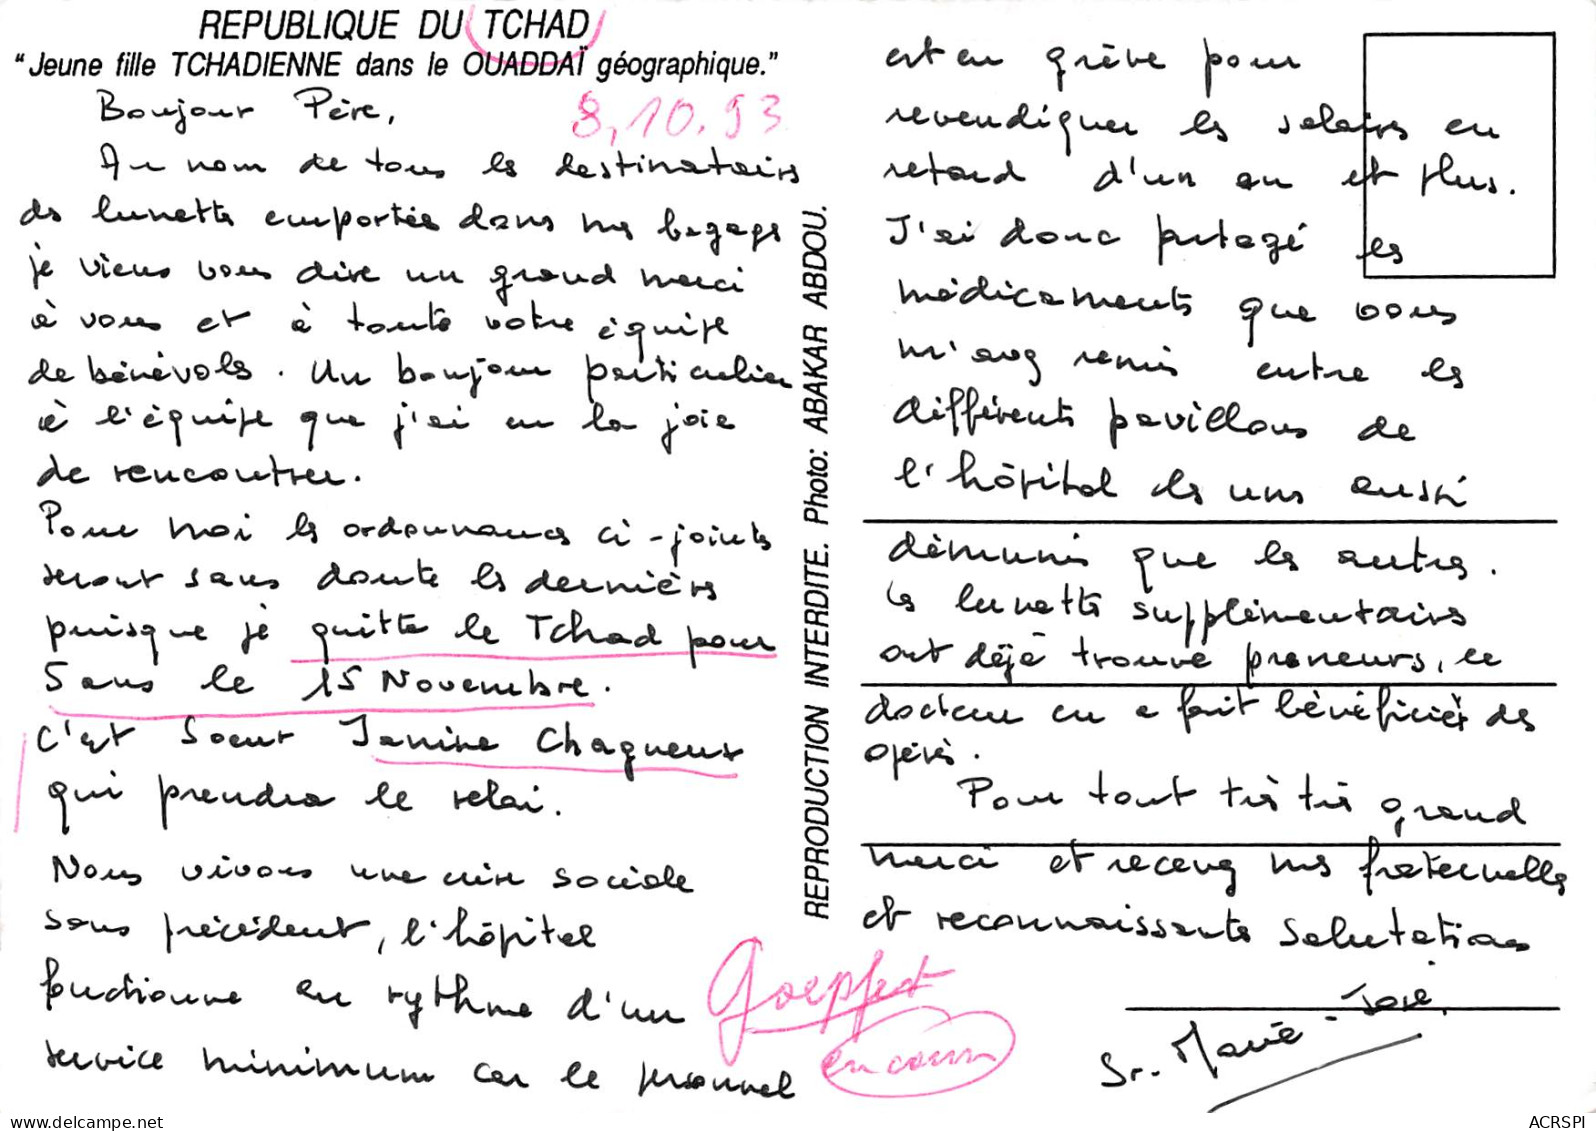 REPUBLIQUE DU TCHAD
"Jeune fille TCHADIENNE dans le OUADDAÏ géographique."
8.10.93
Bonjour Père,
Au nom de tous les destinataires
des lunettes emportées dans mes bagages
je viens vous dire un grand merci
à vous et à toute votre équipe
de bénévoles. Un bonjour particulier
à l'équipe que j'ai eu la joie
de rencontrer.
Pour moi les ordonnances ci-joints
seront sans doute les dernières
puisque je quitte le Tchad pour
5 ans le 15 Novembre.
C'est Soeur Janine Chaqueux
qui prendra le relai.
Nous vivons une crise sociale
sans précédent, l'hôpital
fonctionne au rythme d'un
service minimum car le personnel
Goepfert
en cours
REPRODUCTION INTERDITE. Photo: ABAKAR ABDOU.
est en grève pour
revendiquer les salaires en
retard d'un an et plus.
J'ai donc partagé les
médicaments que vous
m'avez remis entre les
différents pavillons de
l'hôpital les uns aussi
démunis que les autres.
Les lunettes supplémentaires
ont déjà trouvé preneurs, le
docteur en a fait bénéficier des
opérés.
Pour tout très très grand
merci et recevez mes fraternelles
et reconnaissantes salutations
Sr. Marie-José.
ACRSPI